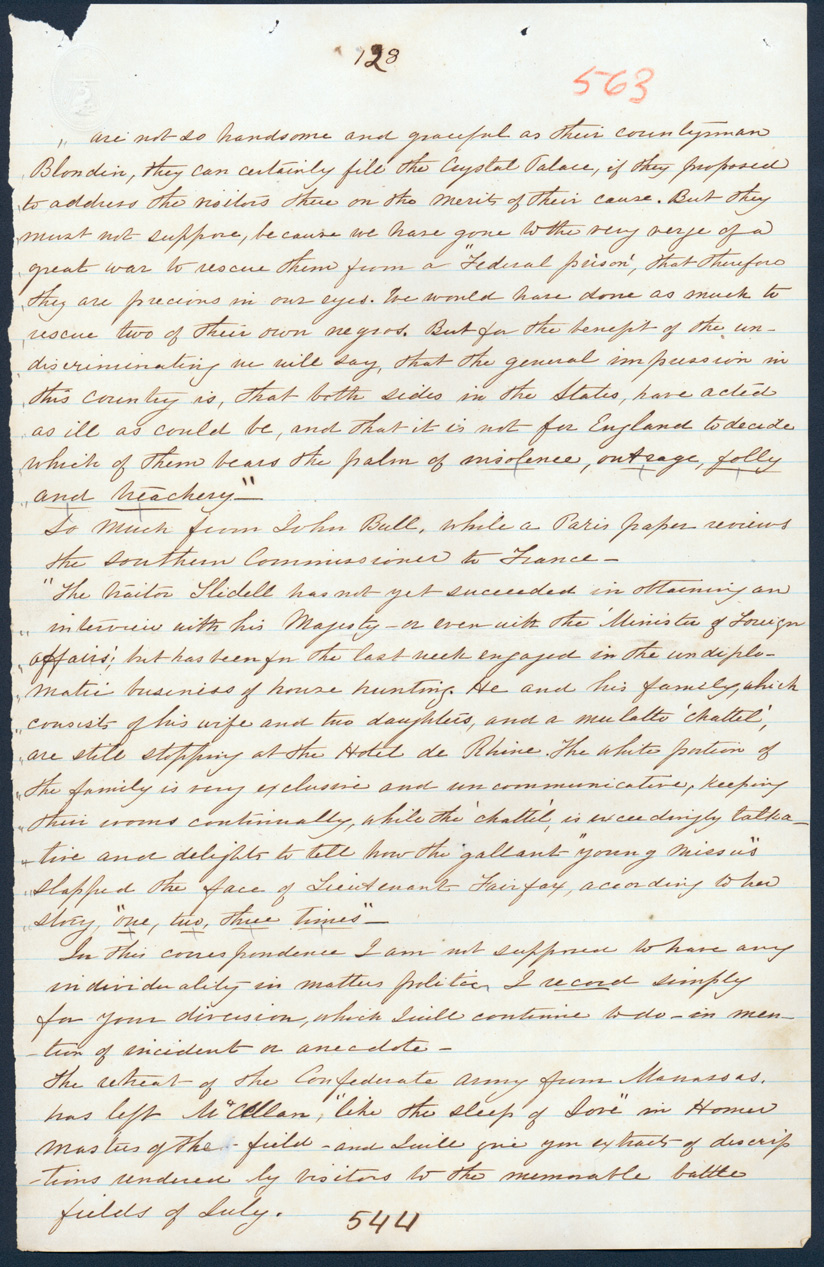 128
563
„ are not so handsome and graceful as their countryman
„ Blondin, they can certainly fill the Crystal Palace, if they proposed
„ to address the visitors there on the merits of their cause. But they
„ must not suppose, because we have gone to the very verge of a
„ great war to rescue them from a "Federal prison', that therefore
„ they are precious in our eyes. We would have done as much to
„ rescue two of their own negros. But for the benefit of the un-
„ discriminating we will say, that the general impression in
„ this country is, that both sides in the States, have acted
„ as ill as could be, and that it is not for England to decide
„ which of them bears the palm of insolence, outrage, folly
„ and treachery"—
So much from John Bull, while a Paris paper reviews
the Southern Commissioner to France—
"The traitor Slidell has not yet succeeded in obtaining an
„ interview with his Majesty—or even with the 'Minister of Foreign
„ affairs', but has been for the last week engaged in the undiplo-
„ matic business of house hunting. He and his family, which
„ consists of his wife and two daughters, and a mulatto 'chattel',
„ are still stopping at the Hotel de Rhine. The white portion of
„ the family is very exclusive and uncommunicative, keeping
„ their rooms continually, while the 'chattel', is exceedingly talka-
„ tive and delights to tell how the gallant "young missus"
„ slapped the face of Lieutenant Fairfax, acording to her
„ story, "one, two, three times"—
In this correspondence I am not supposed to have any
individuality in matters politic, I record simply
for your diversion, which I will continue to do—in men-
-tion of incident or anecdote—
The retreat of the Confederate army from Manassas.
has left McClellan, "like the sleep of Jove" in Homer
master of the field—and I will give you extracts of descrip
-tions rendered by visitors to the memorable battle
fields of July.
544